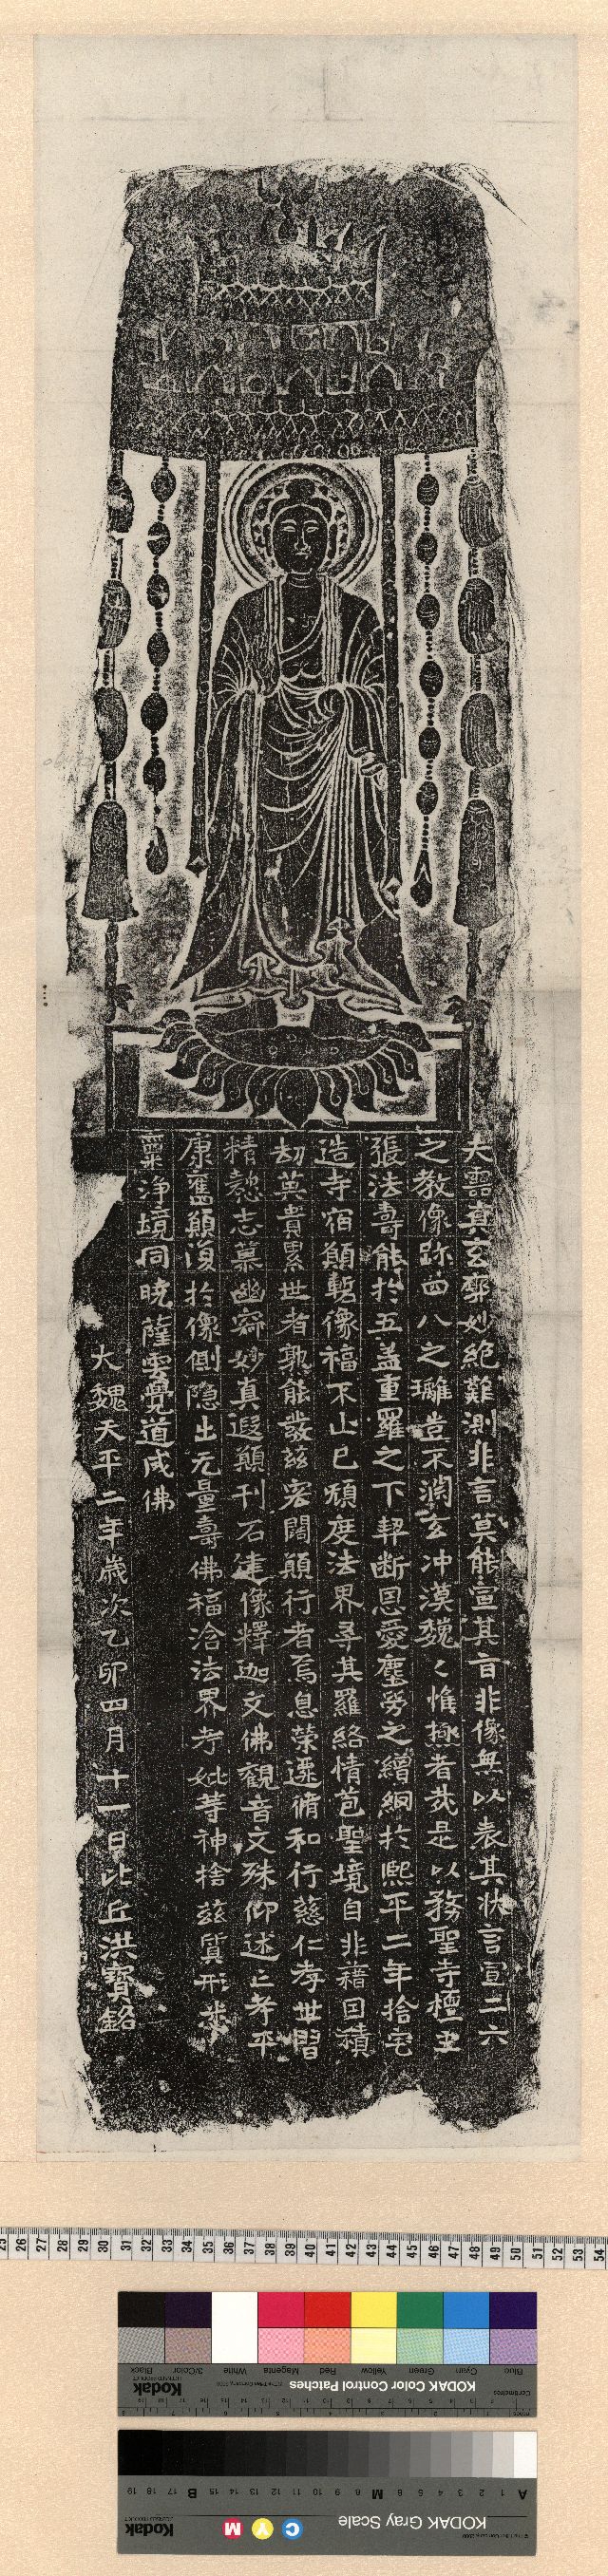 夫靈真玄廓妙絕難測非言莫能宣其旨非像無以表其狀言宣二六
之教像跡四八之璀豈不淵玄沖漠魏〻惟極者哉是以務聖寺檀主
張法壽能於五盖重羅之下契断恩愛塵勞之繒網於熙平二年捨宅
造寺宿願暫像福不止已願度法界尋其羅絡情苞聖境自非藉因積
劫英貴累世者孰能發茲宏闊願行者焉息榮遷脩和行慈仁孝世習
精懃志慕幽寂妙真遐願刊石建像釋迦文佛觀音文殊仰述亡考平
康舊願復於像側隐出无量壽佛福洽法界考妣等神捨茲質形悉
稟浄境同曉薩雲覺道成佛
大魏天平二年歲次乙卯四月十一日比丘洪寶銘
25 26 27 28 29 30 31 32 33 34 35 36 37 38 39 40 41 42 43 44 45 46 47 48 49 50 51 52 53 54
KODAK Color Control Patches
Kodak
Blue Cyan Green Yellow Red Magenta White 3/Color Black
KODAK Gray Scale
Kodak
C Y M
A 1 2 3 4 5 6 M 8 9 10 11 12 13 14 15 B 17 18 19